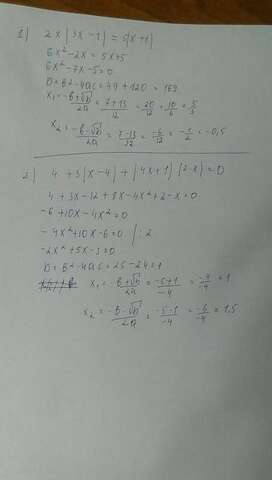 1) 2x(3x-1)=5(x+1)
6x²-2x=5x+5
6x²-7x-5=0
D=b²-4ac=49+120=169
x₁=(-b+√D)/2a=(7+13)/12=20/12=10/6=5/3
x₂=(-b-√D)/2a=(7-13)/12=-6/12=-1/2=-0,5
2) 4+3(x-4)+(4x+1)(2-x)=0
4+3x-12+8x-4x²+2-x=0
-6+10x-4x²=0
-4x²+10x-6=0 |:2
-2x²+5x-3=0
D=b²-4ac=25-24=1
x₁=(-b+√D)/2a=(-5+1)/-4=-4/-4=1
x₂=(-b-√D)/2a=(-5-1)/-4=-6/-4=1,5